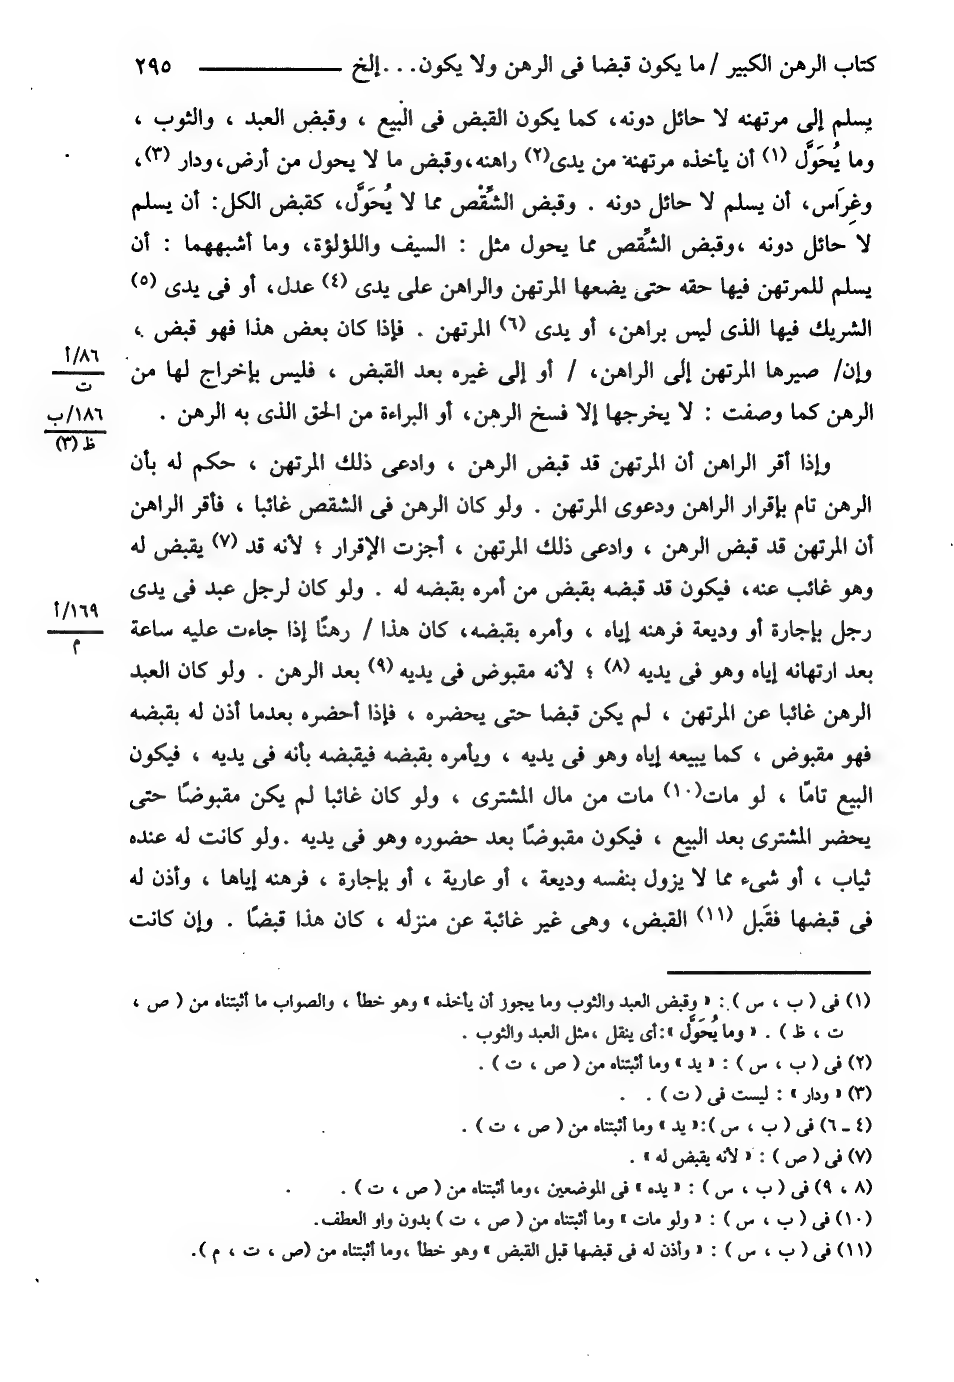 كتاب الرهن الكبير / ما يكون قبضا فى الرهن ولا يكون... إلخ ـــــــــ ٢٩٥
يسلم إلى مرتهنه لا حائل دونه، كما يكون القبض فى البيع ، وقبض العبد ، والثوب ،
وما يُحَوَّل (١) أن يأخذه مرتهنه من يدى(٢) راهنه،وقبض ما لا يحول من أرض،ودار (٣)،
وغِرَاس، أن يسلم لا حائل دونه . وقبض الشِّقْص مما لا يُحَوَّل، كقبض الكل: أن يسلم
لا حائل دونه ،وقبض الشِّقص مما يحول مثل : السيف واللؤلؤة، وما أشبههما : أن
يسلم للمرتهن فيها حقه حتى يضعها المرتهن والراهن على يدى (٤) عدل، أو فى يدى (٥)
الشريك فيها الذى ليس براهن، أو يدى (٦) المرتهن . فإذا كان بعض هذا فهو قبض ،
وإن/ صيرها المرتهن إلى الراهن، / أو إلى غيره بعد القبض ، فليس بإخراج لها من
٨٦/أ
ت
الرهن كما وصفت : لا يخرجها إلا فسخ الرهن، أو البراءة من الحق الذى به الرهن .
١٨٦/ب
ظ (٣)
وإذا أقر الراهن أن المرتهن قد قبض الرهن ، وادعى ذلك المرتهن ، حكم له بأن
الرهن تام بإقرار الراهن ودعوى المرتهن . ولو كان الرهن فى الشقص غائبا ، فأقر الراهن
أن المرتهن قد قبض الرهن ، وادعى ذلك المرتهن ، أجزت الإقرار ؛ لأنه قد (٧) يقبض له
وهو غائب عنه، فيكون قد قبضه بقبض من أمره بقبضه له . ولو كان لرجل عبد فى يدى
رجل بإجارة أو وديعة فرهنه إياه ، وأمره بقبضه، كان هذا / رهنًا إذا جاءت عليه ساعة
١٦٩/أ
م
بعد ارتهانه إياه وهو فى يديه (٨) ؛ لأنه مقبوض فى يديه (٩) بعد الرهن . ولو كان العبد
الرهن غائبا عن المرتهن ، لم يكن قبضا حتى يحضره ، فإذا أحضره بعدما أذن له بقبضه
فهو مقبوض ، كما يبيعه إياه وهو فى يديه ، ويأمره بقبضه فيقبضه بأنه فى يديه ، فيكون
البيع تامّا ، لو مات(١٠) مات من مال المشترى ، ولو كان غائبا لم يكن مقبوضًا حتى
يحضر المشترى بعد البيع ، فيكون مقبوضًا بعد حضوره وهو فى يديه .ولو كانت له عنده
ثياب ، أو شىء مما لا يزول بنفسه وديعة ، أو عارية ، أو بإجارة ، فرهنه إياها ، وأذن له
فى قبضها فقَبل (١١) القبض، وهى غير غائبة عن منزله ، كان هذا قبضًا . وإن كانت
(١) فى ( ب ، س ) : « وقبض العبد والثوب وما يجوز أن يأخذه » وهو خطأ ، والصواب ما أثبتناه من ( ص ،
ت ، ظ ) . « وما يُحَوَّل »:أى ينقل ،مثل العبد والثوب .
(٢) فى ( ب ، س ) : « يد » وما أثبتناه من ( ص ، ت ) .
(٣) « ودار » : ليست فى ( ت ) .
(٤ ـ ٦) فى ( ب ، س ):« يد » وما أثبتناه من ( ص ، ت ) .
(٧) فى ( ص ) : « لأنه يقبض له » .
(٨ ، ٩) فى ( ب ، س ) : « يده » فى الموضعين ،وما أثبتناه من ( ص ، ت ) .
(١٠) فى ( ب ، س ) : « ولو مات » وما أثبتناه من ( ص ، ت ) بدون واو العطف.
(١١) فى ( ب ، س ) : « وأذن له فى قبضها قبل القبض » وهو خطأ ،وما أثبتناه من (ص ، ت ، م ).